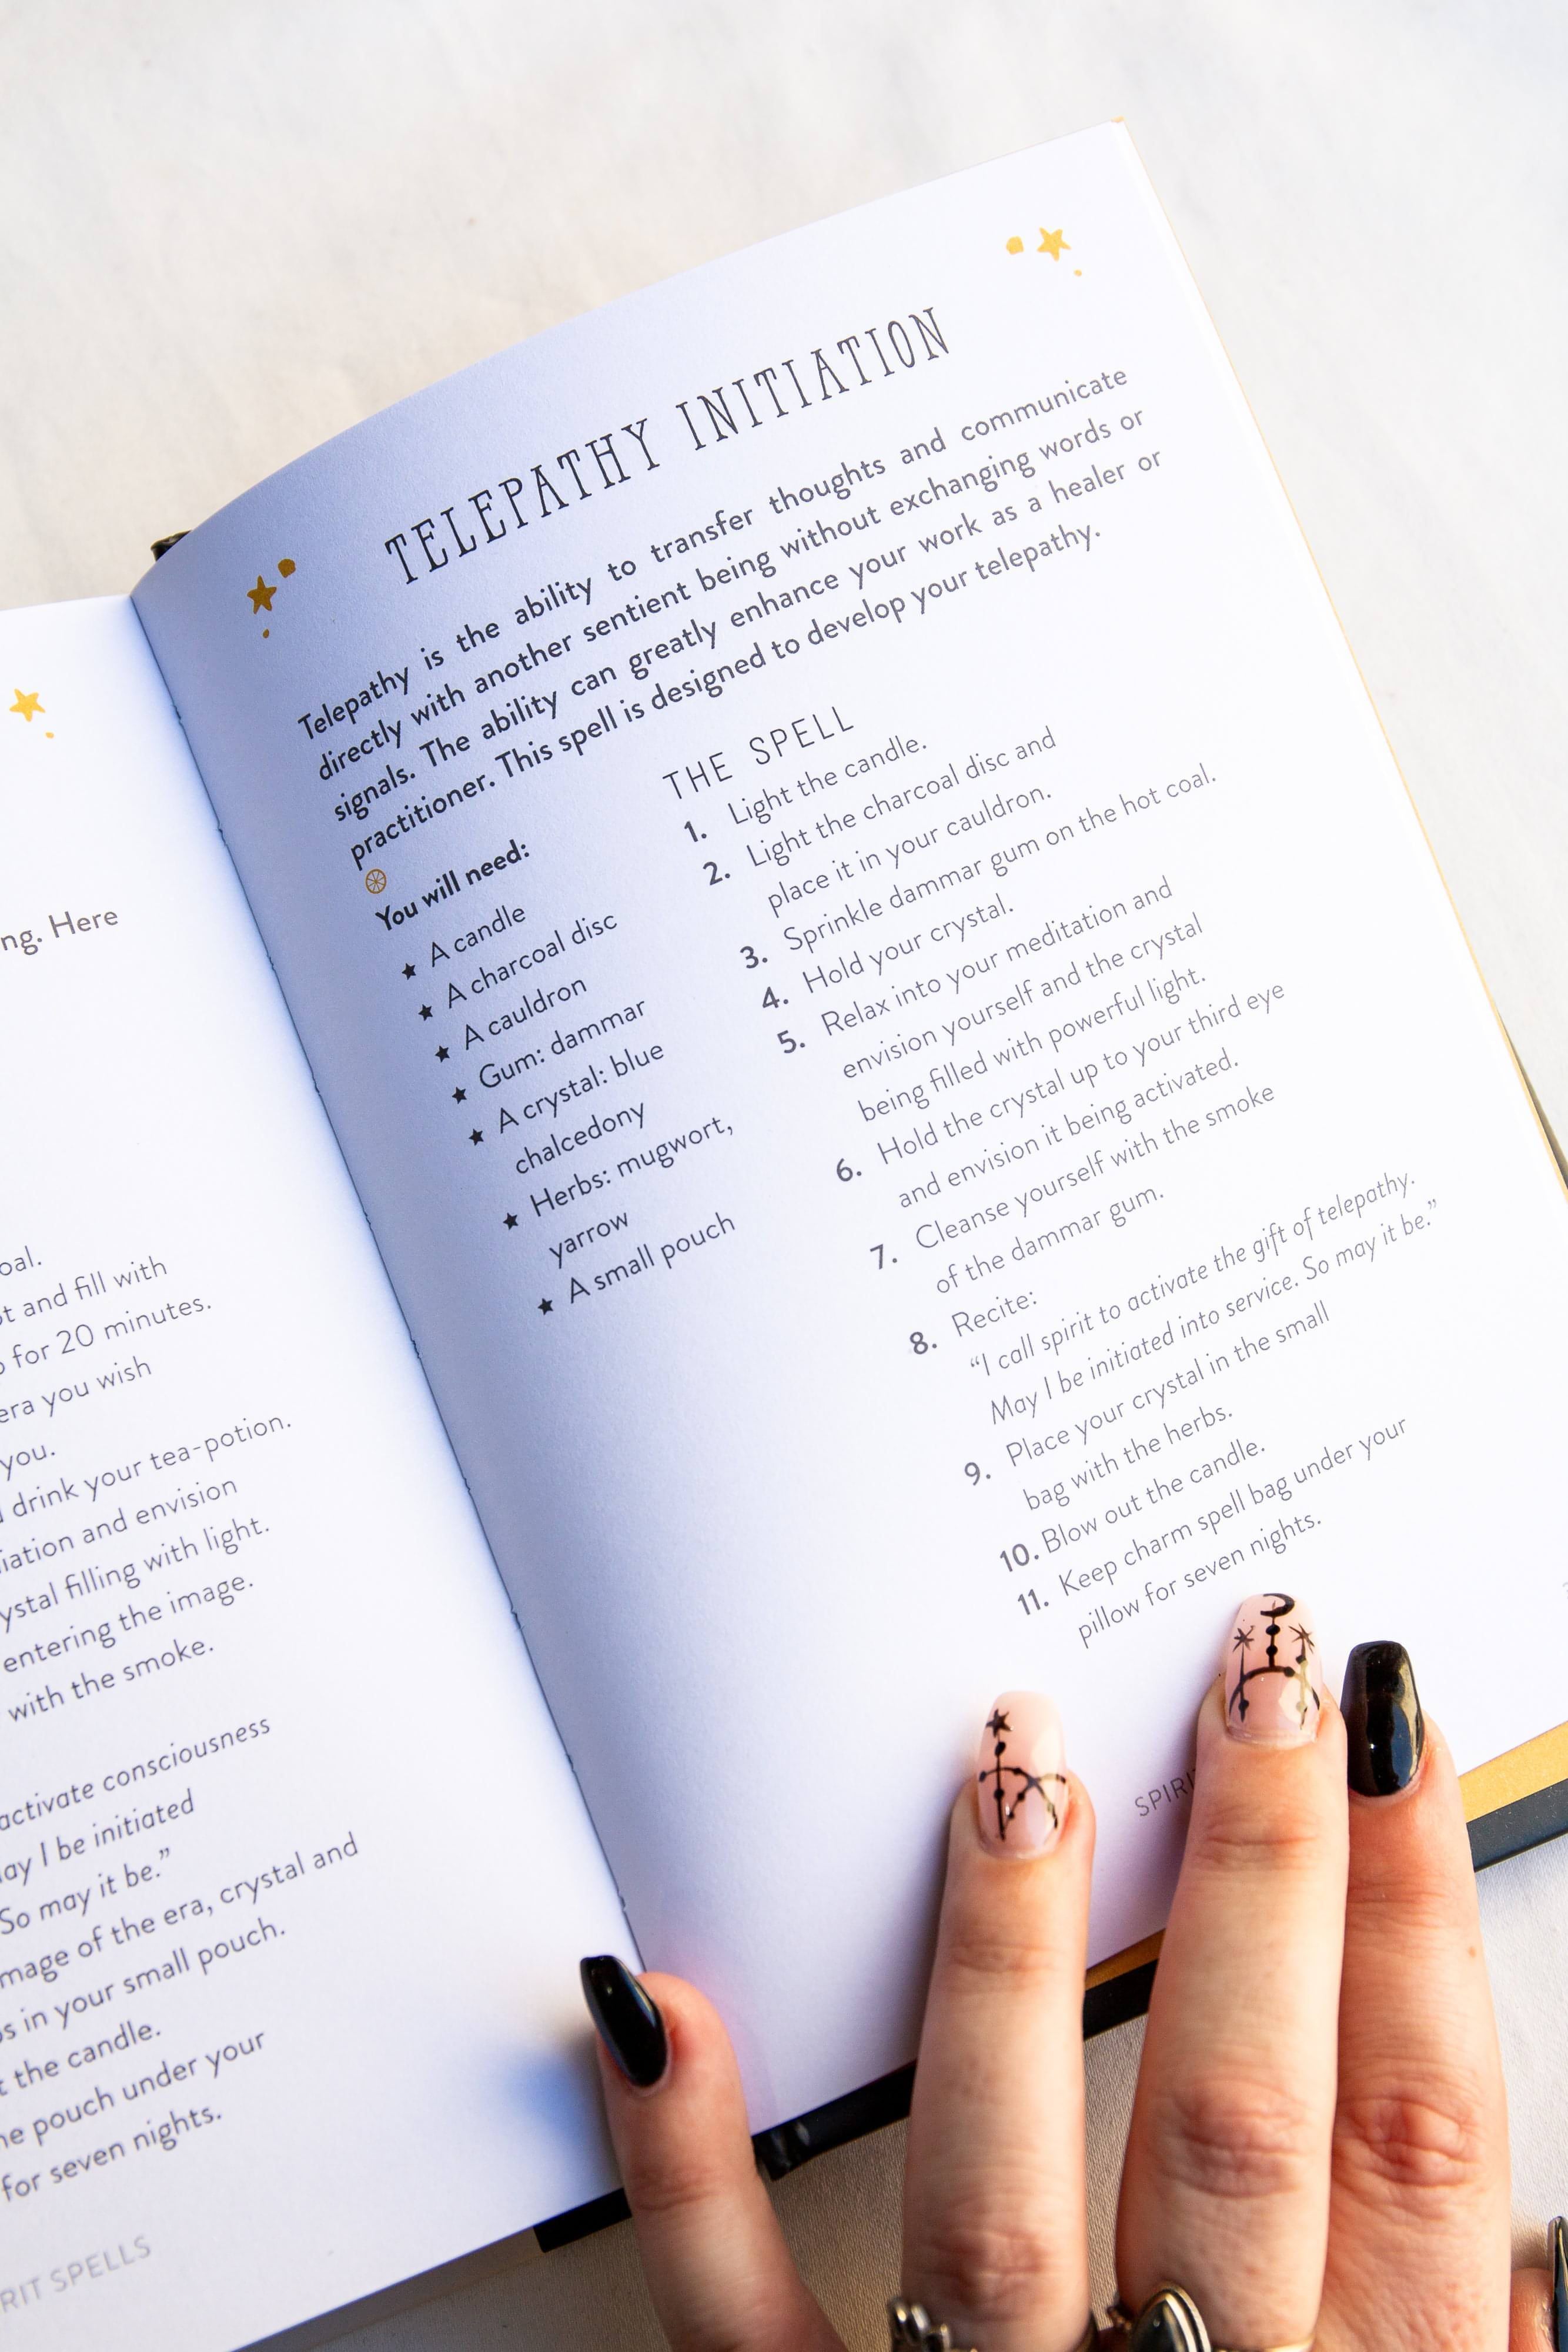 ng. Here
oal.
and fill with
for 20 minutes.
era you wish
you.
drink your tea-potion.
iation and envision
ystal filling with light.
entering the image.
with the smoke.
activate consciousness
ay I be initiated
So may it be.”
mage of the era, crystal and
s in your small pouch.
t the candle.
he pouch under your
for seven nights.
RIT SPELLS
TELEPATHY INITIATION
Telepathy is the ability to transfer thoughts and communicate
directly with another sentient being without exchanging words or
signals. The ability can greatly enhance your work as a healer or
practitioner. This spell is designed to develop your telepathy.
You will need:
★ A candle
★ A charcoal disc
★ A cauldron
★ Gum: dammar
★ A crystal: blue
chalcedony
★ Herbs: mugwort,
yarrow
★ A small pouch
THE SPELL
1. Light the candle.
2. Light the charcoal disc and
place it in your cauldron.
3. Sprinkle dammar gum on the hot coal.
4. Hold your crystal.
5. Relax into your meditation and
envision yourself and the crystal
being filled with powerful light.
6. Hold the crystal up to your third eye
and envision it being activated.
7. Cleanse yourself with the smoke
of the dammar gum.
8. Recite:
“I call spirit to activate the gift of telepathy.
May I be initiated into service. So may it be.”
9. Place your crystal in the small
bag with the herbs.
10. Blow out the candle.
11. Keep charm spell bag under your
pillow for seven nights.
SPIRIT